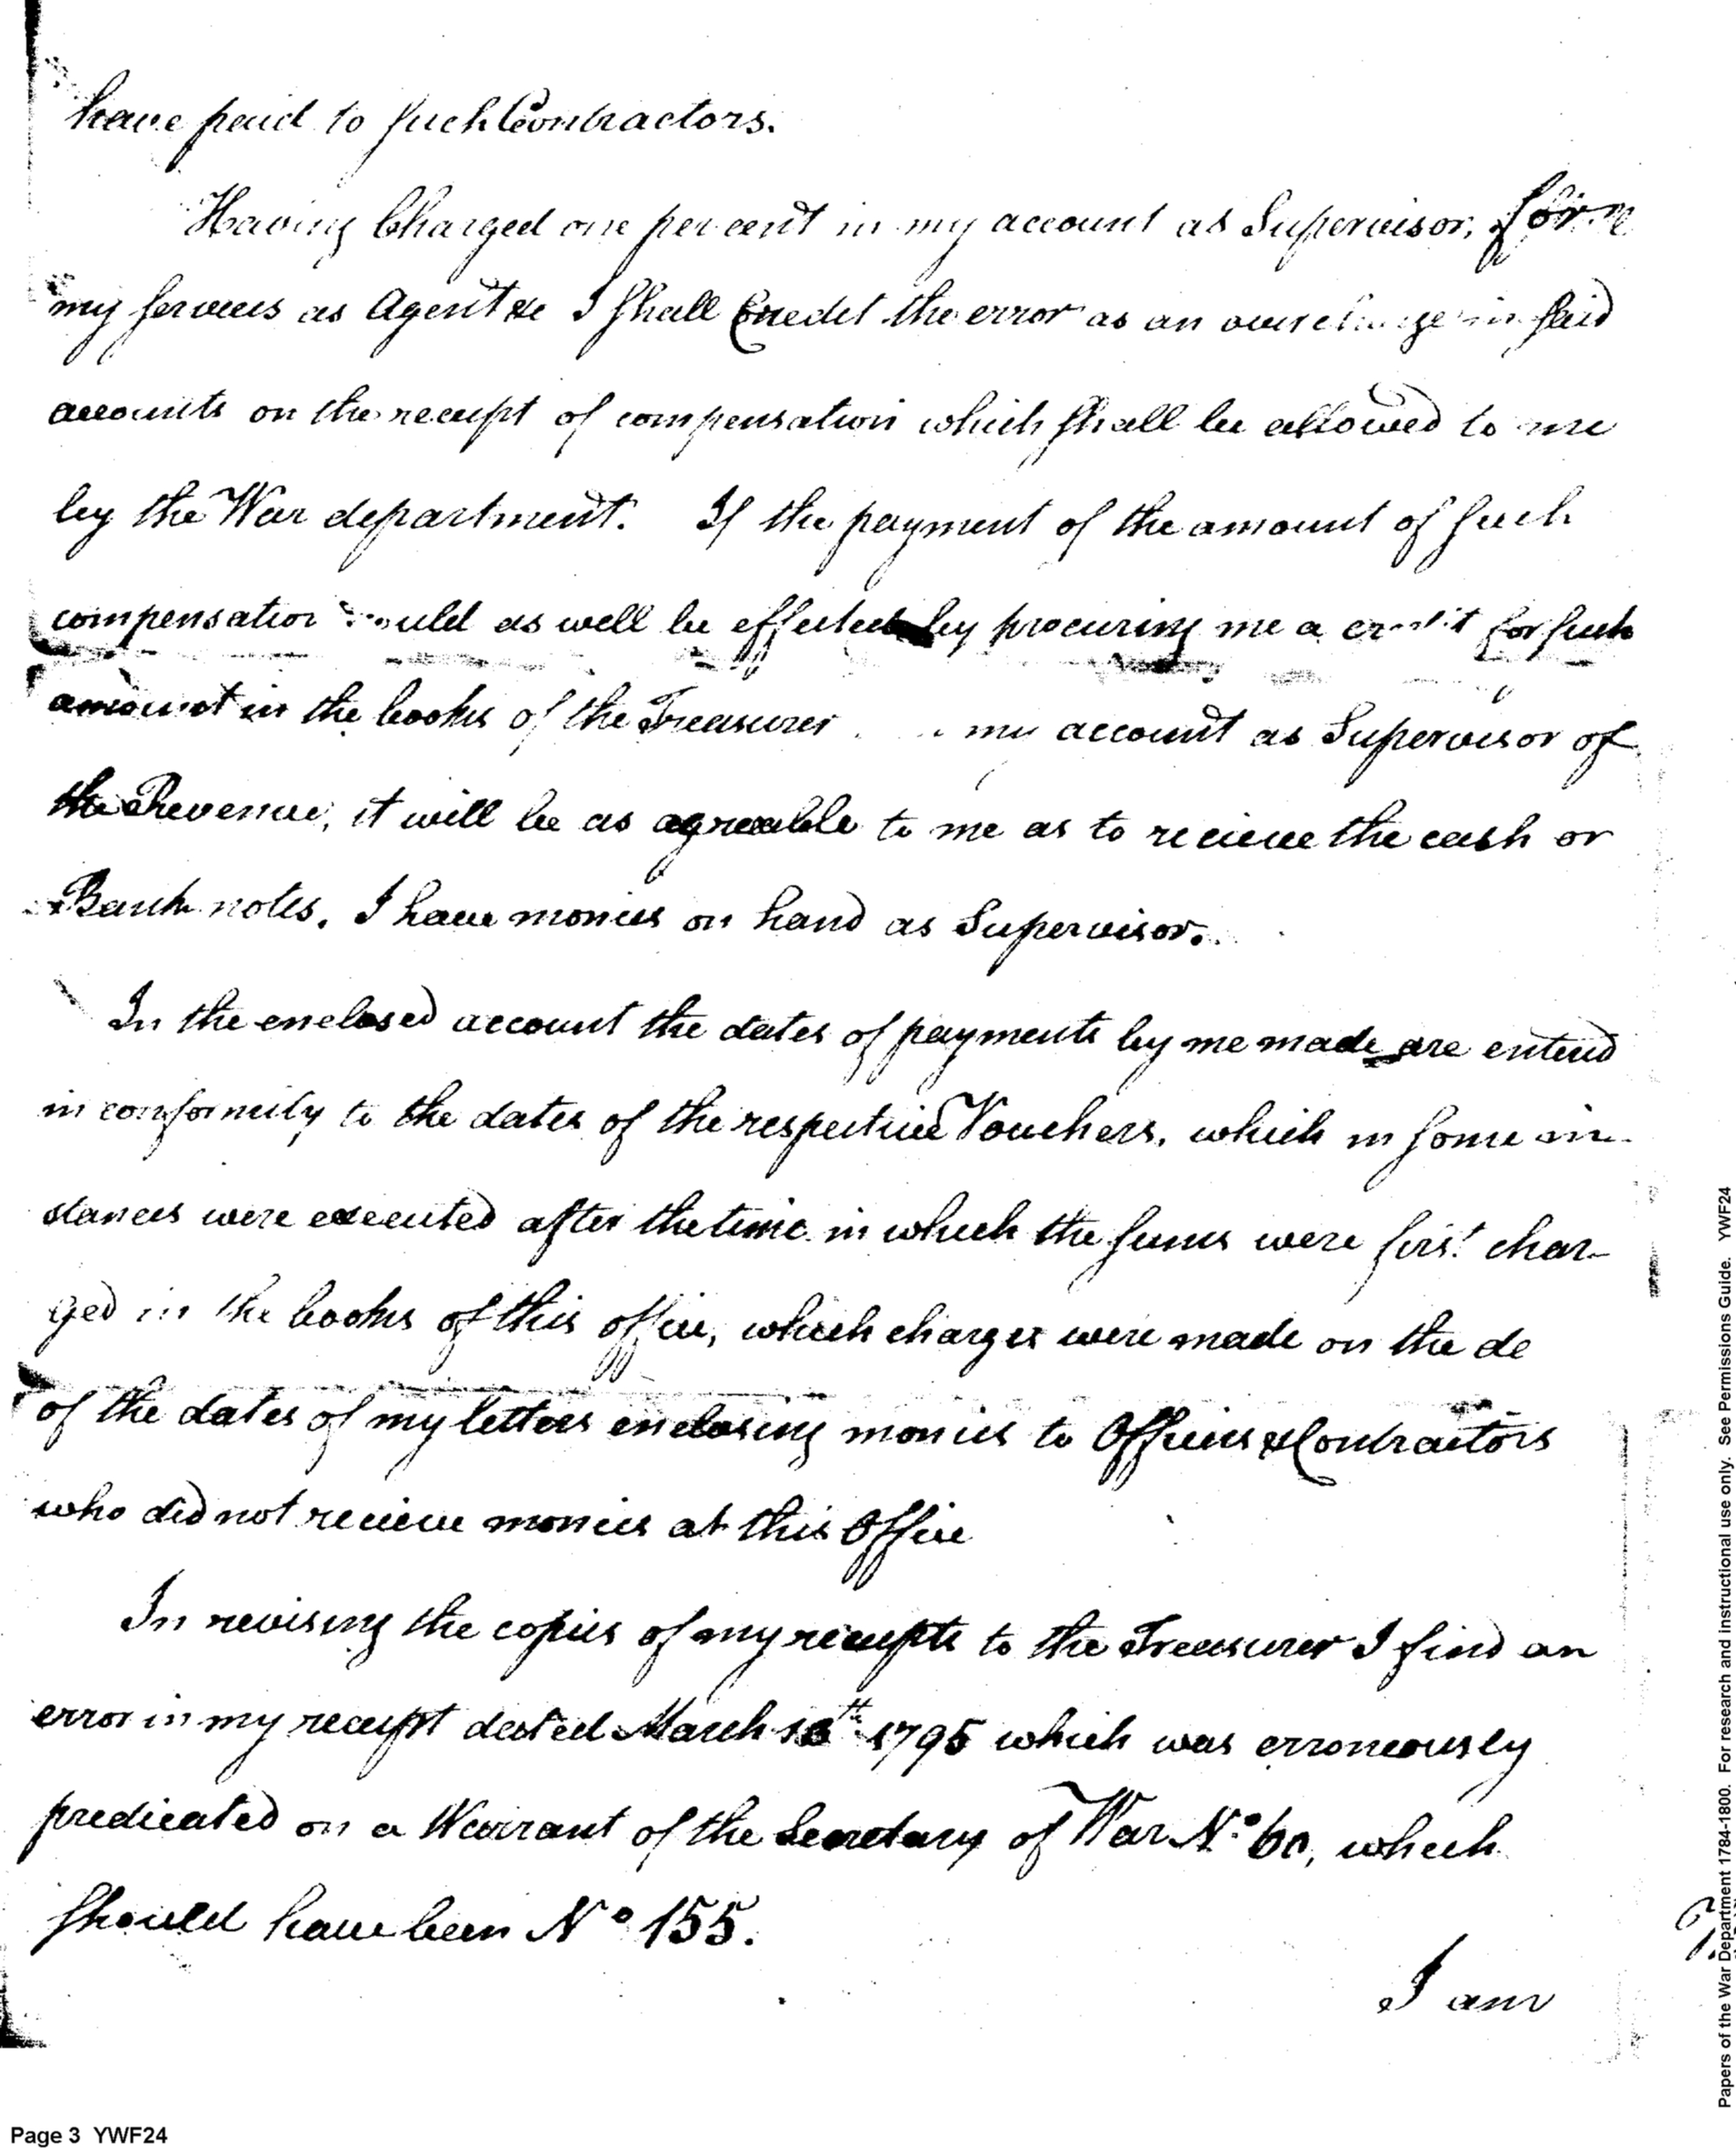 have paid to such Contractors.
Having Charged one per cent in my account as Supervisor, for
my services as Agent &c I shall Credit the error as an overcharge in said
accounts on the receipt of compensation which shall be allowed to me
by the War department. If the payment of the amount of such
compensation could as well be effected by procuring me a credit for such
amount in the books of the Treasurer my account as Supervisor of
the Revenue, it will be as agreeable to me as to recieve the cash or
Bank notes. I have monies on hand as Supervisor.
In the enclosed account the dates of payments by me made are entered
in conformity to the dates of the respective Vouchers, which in some in-
stances were executed after the time in which the sums were first char-
ged in the books of this office, which charges were made on the de
of the dates of my letters enclosing monies to Officers & Contractors
who did not recieve monies at this Office
In revising the copies of my receipts to the Treasurer I find an
error in my receipt dated March 13th 1795 which was erroneously
predicated on a Warrant of the Secretary of War No. 60, which
should have been No 155.
I am
Page 3 YWF24
Papers of the War Department 1784-1800. For research and instructional use only. See Permissions Guide. YWF24